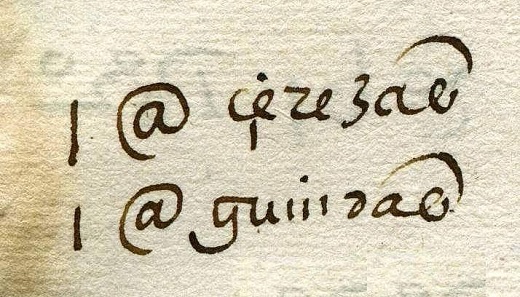 1 @ çerezas
1 @ guindas